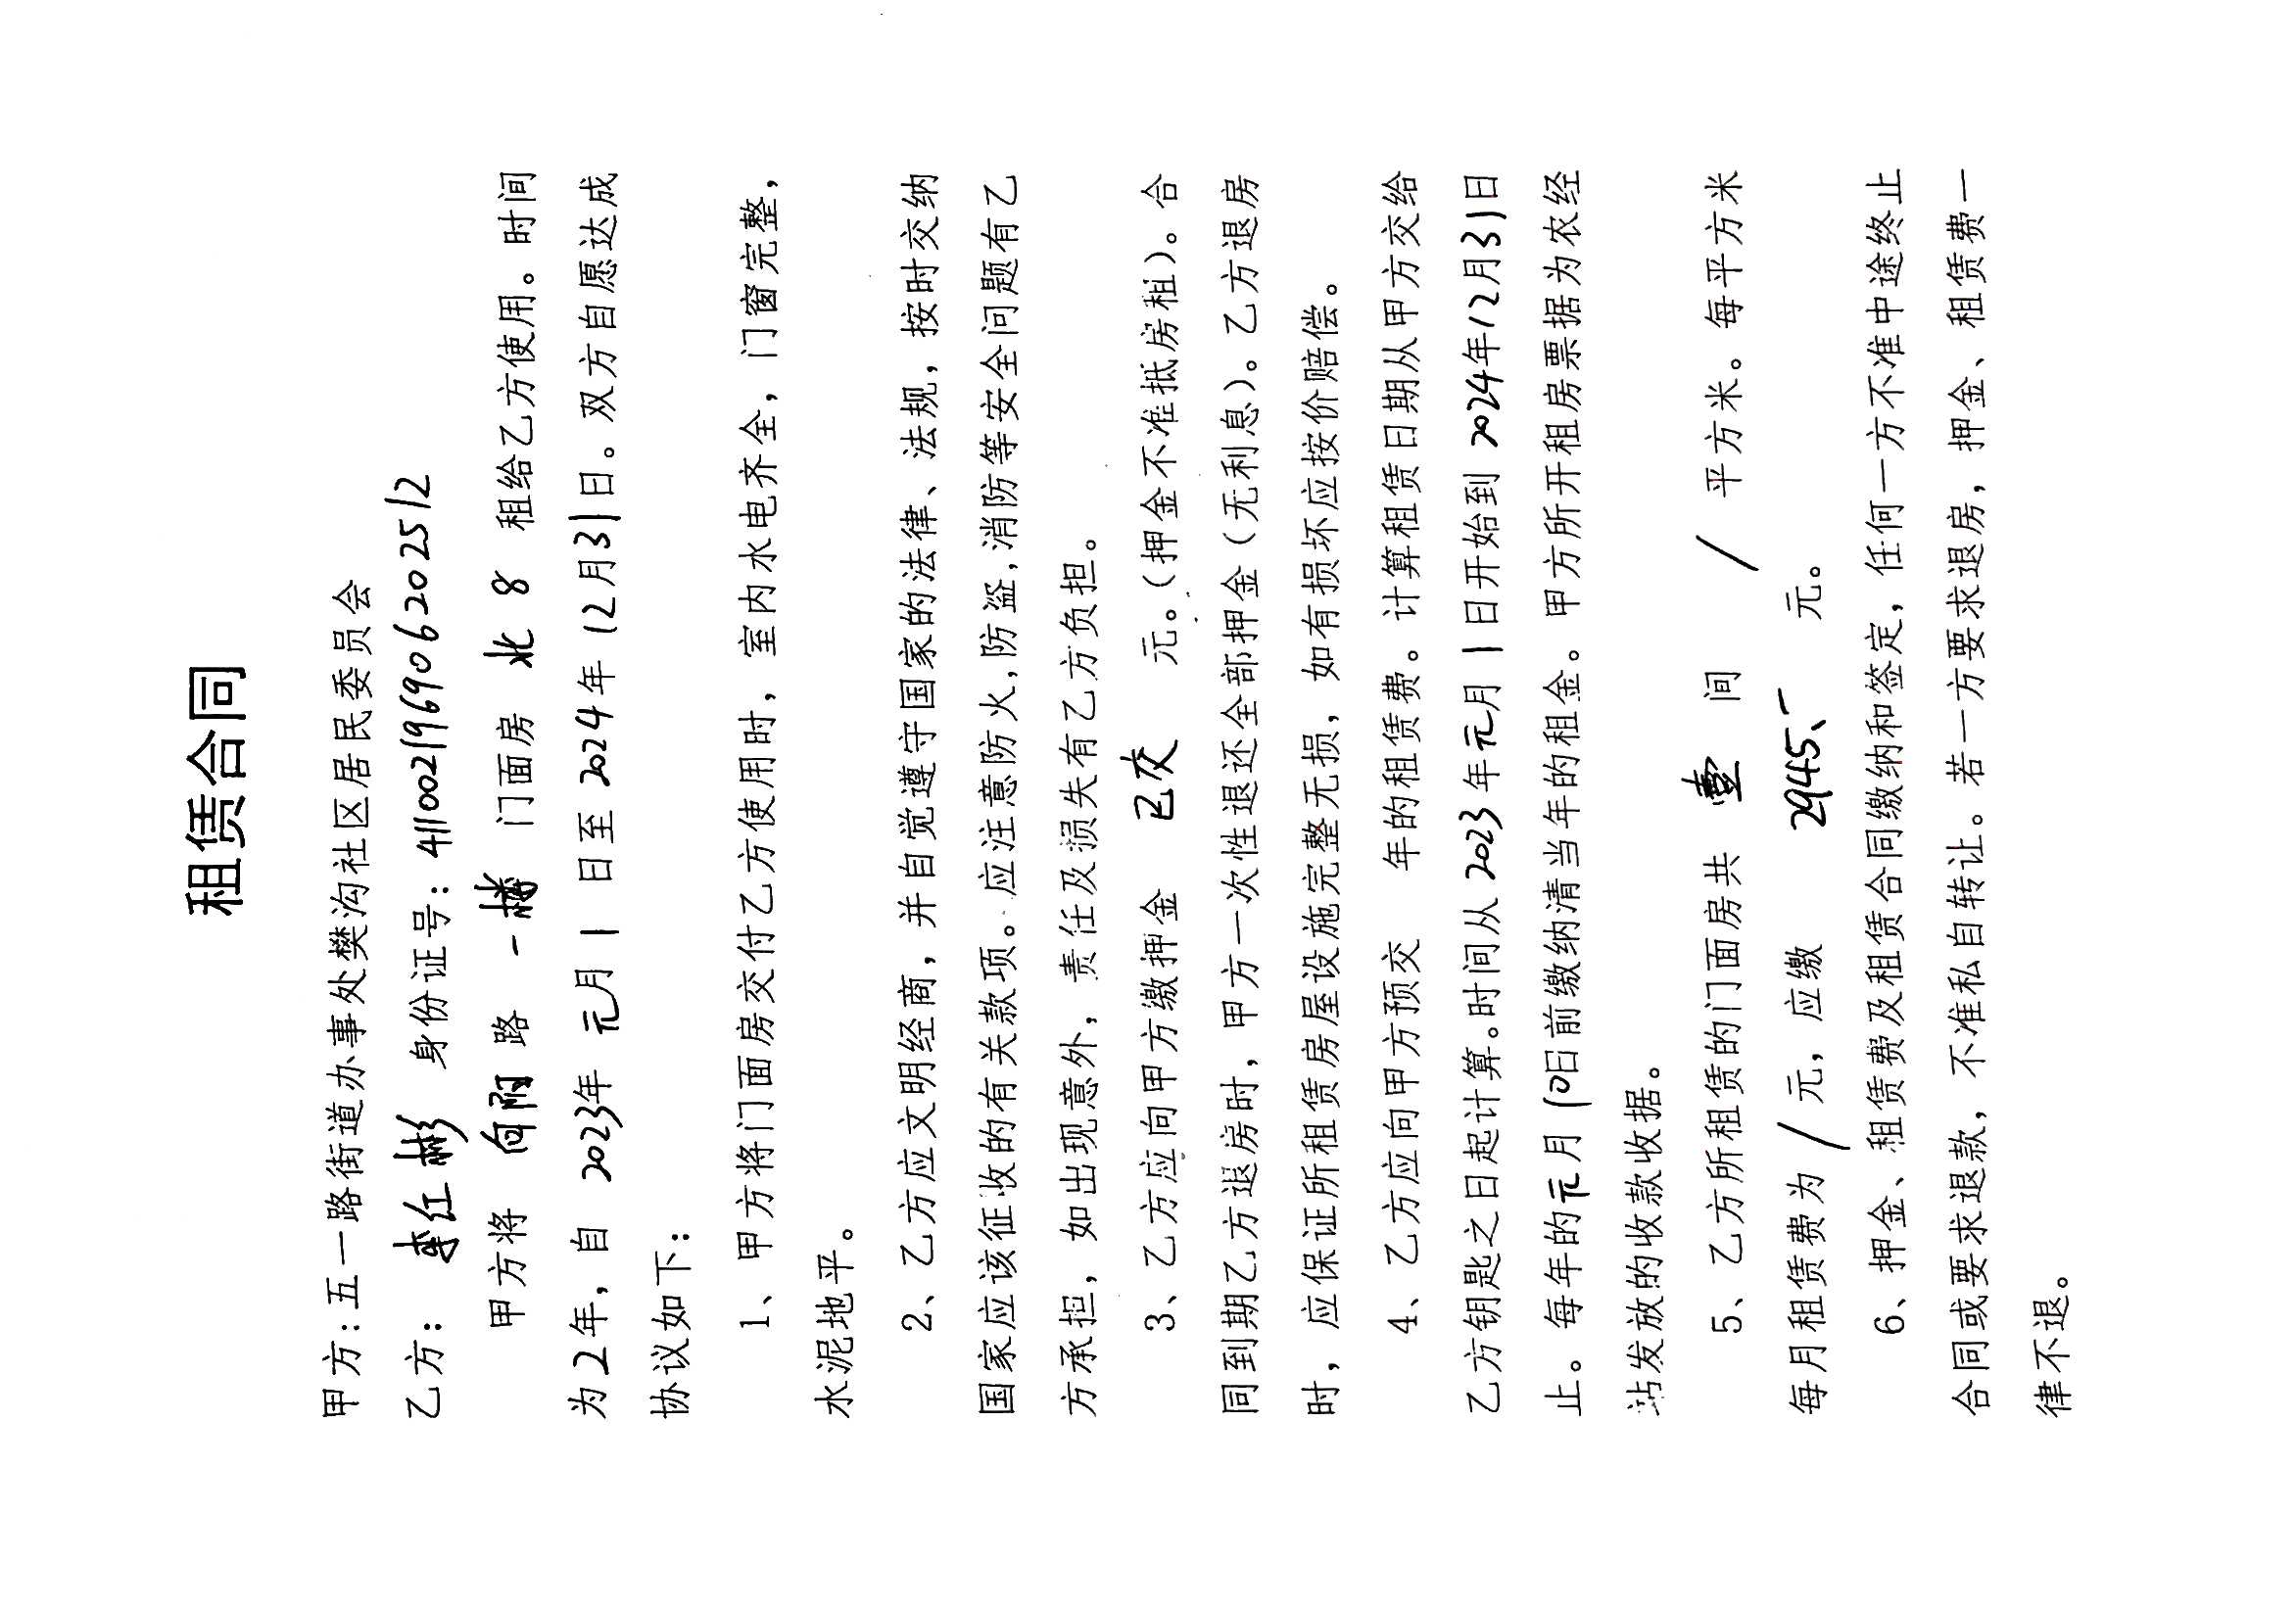 租赁合同
甲方：五一路街道办事处樊沟社区居民委员会
乙方： 李红彬 身份证号：411002196906202512
甲方将 向阳 路 一楼 门面房 北 8 租给乙方使用。时间
为2年，自 2023年 元月 1 日至 2024年 12月31日。双方自愿达成
协议如下：
1、甲方将门面房交付乙方使用时，室内水电齐全，门窗完整，
水泥地平。
2、乙方应文明经商，并自觉遵守国家的法律、法规，按时交纳
国家应该征收的有关款项。应注意防火,防盗,消防等安全问题有乙
方承担，如出现意外，责任及损失有乙方负担。
3、乙方应向甲方缴押金 已交 元。（押金不准抵房租）。合
同到期乙方退房时，甲方一次性退还全部押金（无利息）。乙方退房
时，应保证所租赁房屋设施完整无损，如有损坏应按价赔偿。
4、乙方应向甲方预交 年的租赁费。计算租赁日期从甲方交给
乙方钥匙之日起计算。时间从2023年元月1日开始到2024年12月31日
止。每年的元月10日前缴纳清当年的租金。甲方所开租房票据为农经
站发放的收款收据。
5、乙方所租赁的门面房共 壹 间 / 平方米。每平方米
每月租赁费为 / 元，应缴 2945、- 元。
6、押金、租赁费及租赁合同缴纳和签定，任何一方不准中途终止
合同或要求退款，不准私自转让。若一方要求退房，押金、租赁费一
律不退。